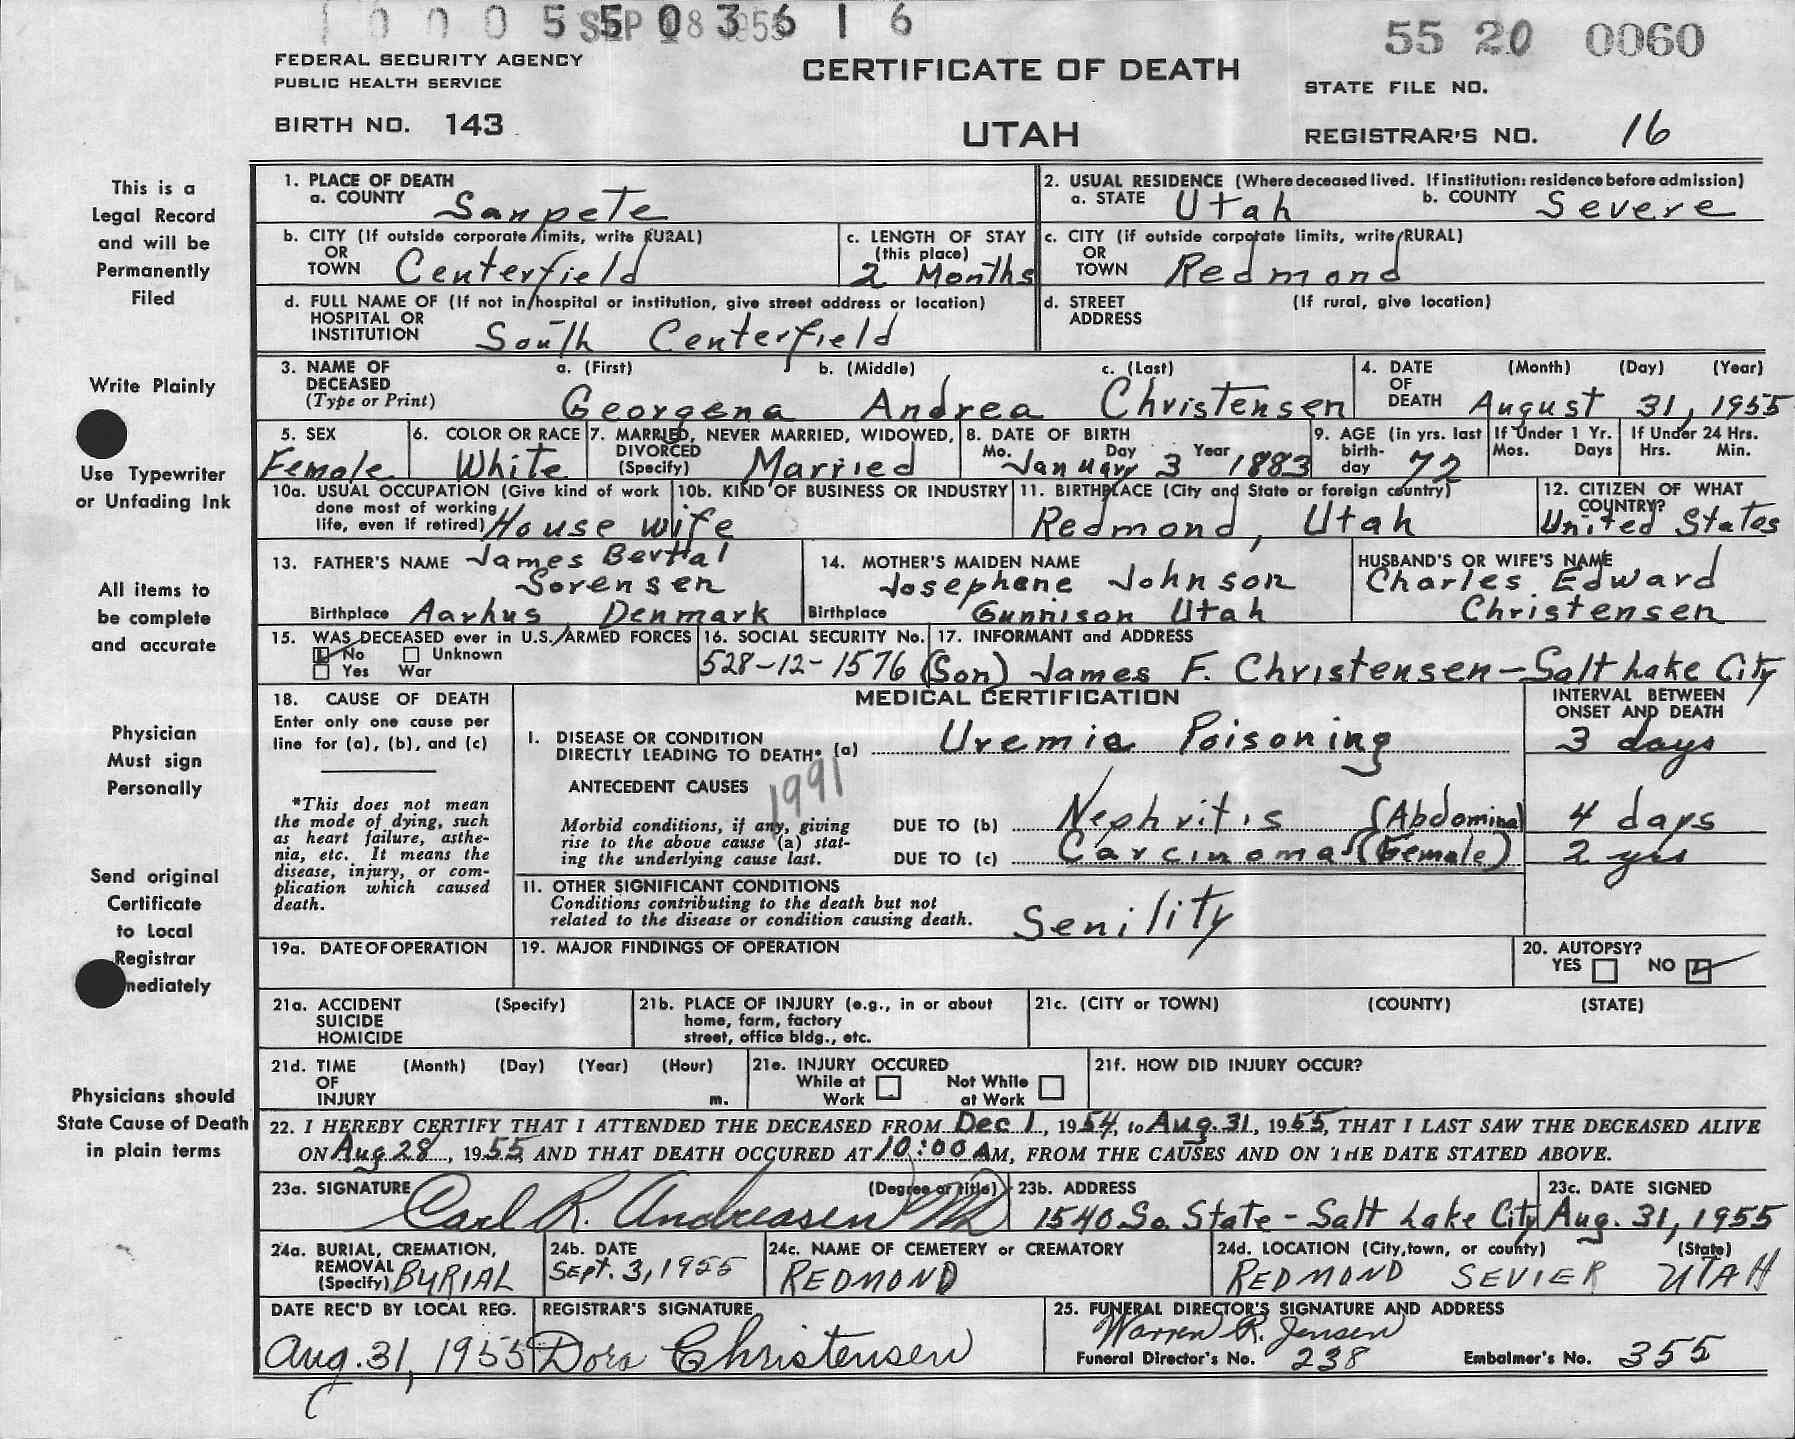 1 0 0 0 5 5 0 3 6 1 6
SEP 8 1955
55 20 0060
FEDERAL SECURITY AGENCY
PUBLIC HEALTH SERVICE
BIRTH NO. 143
CERTIFICATE OF DEATH
UTAH
STATE FILE NO.
REGISTRAR'S NO. 16
This is a
Legal Record
and will be
Permanently
Filed
Write Plainly
Use Typewriter
or Unfading Ink
All items to
be complete
and accurate
Physician
Must sign
Personally
Send original
Certificate
to Local
Registrar
mediately
Physicians should
State Cause of Death
in plain terms
1. PLACE OF DEATH
a. COUNTY Sanpete
2. USUAL RESIDENCE (Where deceased lived. If institution: residence before admission)
a. STATE Utah b. COUNTY Severe
b. CITY (If outside corporate limits, write RURAL)
OR
TOWN Centerfield
c. LENGTH OF STAY
(this place)
2 Months
c. CITY (if outside corporate limits, write RURAL)
OR
TOWN Redmond
d. FULL NAME OF (If not in hospital or institution, give street address or location)
HOSPITAL OR
INSTITUTION South Centerfield
d. STREET (If rural, give location)
ADDRESS
3. NAME OF a. (First) b. (Middle) c. (Last)
DECEASED
(Type or Print) Georgena Andrea Christensen
4. DATE (Month) (Day) (Year)
OF
DEATH August 31, 1955
5. SEX
Female
6. COLOR OR RACE
White
7. MARRIED, NEVER MARRIED, WIDOWED,
DIVORCED
(Specify) Married
8. DATE OF BIRTH
Mo. Day Year
January 3 1883
9. AGE (in yrs. last
birth-
day 72
If Under 1 Yr.
Mos. Days
If Under 24 Hrs.
Hrs. Min.
10a. USUAL OCCUPATION (Give kind of work
done most of working
life, even if retired) House wife
10b. KIND OF BUSINESS OR INDUSTRY
11. BIRTHPLACE (City and State or foreign country)
Redmond, Utah
12. CITIZEN OF WHAT
COUNTRY?
United States
13. FATHER'S NAME James Bertal
Sorensen
Birthplace Aarhus Denmark
14. MOTHER'S MAIDEN NAME
Josephene Johnson
Birthplace Gunnison Utah
HUSBAND'S OR WIFE'S NAME
Charles Edward
Christensen
15. WAS DECEASED ever in U.S. ARMED FORCES
No Unknown
Yes War
16. SOCIAL SECURITY No.
528-12-1576
17. INFORMANT and ADDRESS
(Son) James F. Christensen-Salt Lake City
18. CAUSE OF DEATH
Enter only one cause per
line for (a), (b), and (c)
*This does not mean
the mode of dying, such
as heart failure, asthe-
nia, etc. It means the
disease, injury, or com-
plication which caused
death.
MEDICAL CERTIFICATION
INTERVAL BETWEEN
ONSET AND DEATH
I. DISEASE OR CONDITION
DIRECTLY LEADING TO DEATH* (a) Uremia Poisoning 3 days
ANTECEDENT CAUSES
1991
Morbid conditions, if any, giving
rise to the above cause (a) stat-
ing the underlying cause last.
DUE TO (b) Nephritis (Abdominal 4 days
DUE TO (c) Carcinoma (Female) 2 yrs
11. OTHER SIGNIFICANT CONDITIONS
Conditions contributing to the death but not
related to the disease or condition causing death. Senility
19a. DATE OF OPERATION
19. MAJOR FINDINGS OF OPERATION
20. AUTOPSY?
YES NO
21a. ACCIDENT (Specify)
SUICIDE
HOMICIDE
21b. PLACE OF INJURY (e.g., in or about
home, farm, factory
street, office bldg., etc.
21c. (CITY or TOWN) (COUNTY) (STATE)
21d. TIME (Month) (Day) (Year) (Hour)
OF
INJURY m.
21e. INJURY OCCURED
While at Work
Not While at Work
21f. HOW DID INJURY OCCUR?
22. I HEREBY CERTIFY THAT I ATTENDED THE DECEASED FROM Dec 1, 1954, to Aug. 31, 1955, THAT I LAST SAW THE DECEASED ALIVE
ON Aug 28, 1955, AND THAT DEATH OCCURED AT 10:00 AM, FROM THE CAUSES AND ON THE DATE STATED ABOVE.
23a. SIGNATURE (Degree or title)
Carl R. Andreasen MD
23b. ADDRESS
1540 So. State - Salt Lake City
23c. DATE SIGNED
Aug. 31, 1955
24a. BURIAL, CREMATION,
REMOVAL
(Specify) BURIAL
24b. DATE
SEPT. 3, 1955
24c. NAME OF CEMETERY or CREMATORY
REDMOND
24d. LOCATION (City, town, or county) (State)
REDMOND SEVIER UTAH
DATE REC'D BY LOCAL REG.
Aug. 31, 1955
REGISTRAR'S SIGNATURE
Dora Christensen
25. FUNERAL DIRECTOR'S SIGNATURE AND ADDRESS
Warren R. Jensen
Funeral Director's No. 238 Embalmer's No. 355